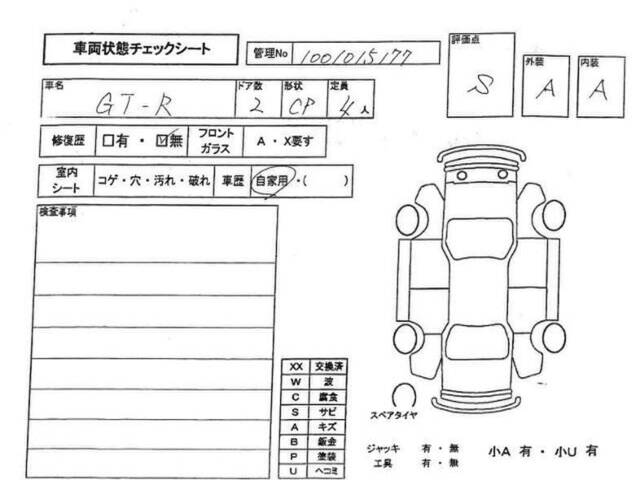 車両状態チェックシート
管理No 1001015177
評価点 S
外装 A
内装 A
車名 GT-R
ドア数 2
形状 CP
定員 4人
修復歴 □有・☑無
フロントガラス A・X要す
室内シート コゲ・穴・汚れ・破れ
車歴 自家用・( )
検査事項
XX 交換済
W 波
C 腐食
S サビ
A キズ
B 鈑金
P 塗装
U ヘコミ
スペアタイヤ
ジャッキ 有・無
工具 有・無
小A 有・小U 有